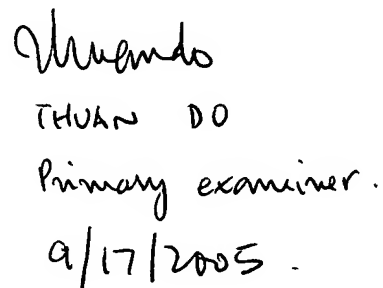 THUAN DO
Primary examiner.
9/17/2005.